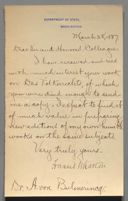 DEPARTMENT OF STATE,
WASHINGTON.
March 28, '87
Dear Sir and Honored Colleague,
I have received and read
with much interest your work
on Das Völkerrecht, of which
you were kind enough to send
me a copy. I expect to find it
of much value in preparing
new editions of my own humble
works on the same subject.
Very truly yours,
Francis Wharton
Dr. A. von Bulmerincq